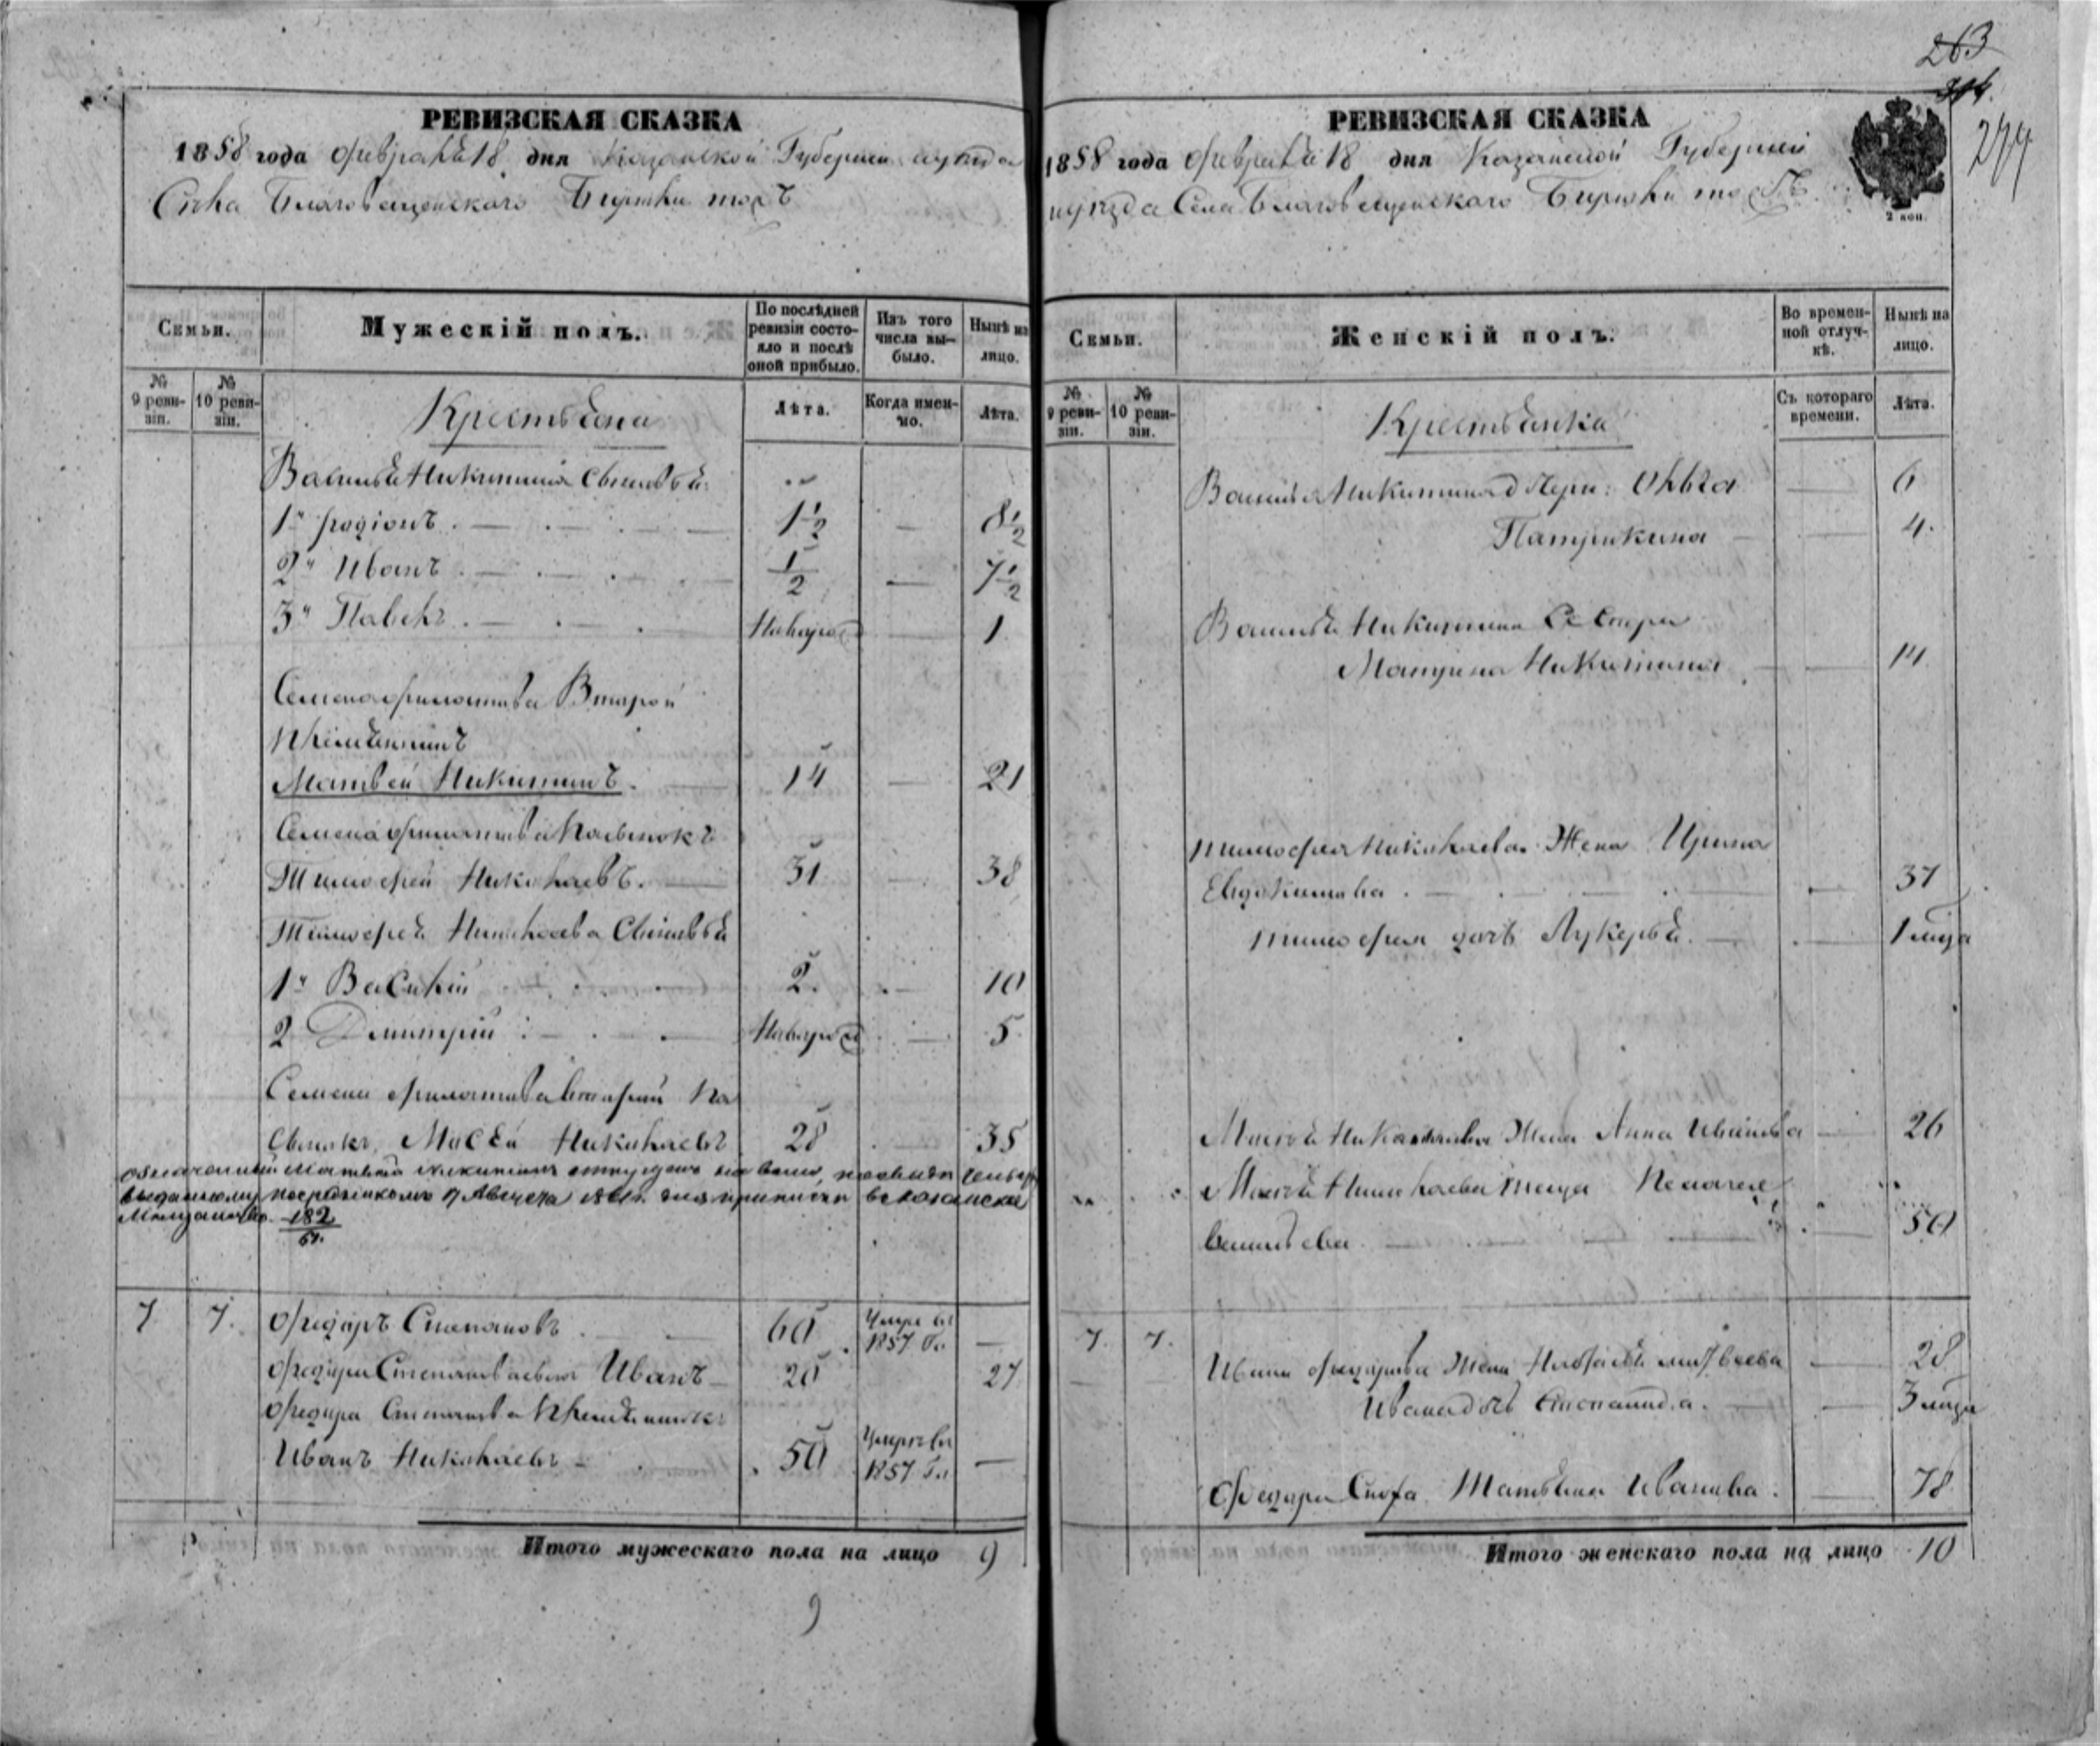 263
314.
277
РЕВИЗСКАЯ СКАЗКА
1858 года февраля 18 дня Казанской Губернии и уезда
Села Благовещенского Бирюли тожъ
Семьи.
Мужескій полъ.
По послѣдней ревизіи состояло и послѣ оной прибыло.
Изъ того числа выбыло.
Нынѣ на лицо.
№ 9 ревизіи.
№ 10 ревизіи.
Крестьяна
Лѣта.
Когда именно.
Лѣта.
Василья Никитина сыновья
1й Родіонъ 1½ — 8½
2й Иванъ ½ — 7½
3й Павелъ Новорож — 1
Семена Филатова Второй
племянникъ
Матвей Никитинъ 14 — 21
Семена Филатова
Тимофей Николаевъ 31 — 38
Тимофея Николаева Сыновья
1й Василій 2 — 10
2 Дмитрій Новорож — 5
Семена Филатова вторый па
сынокъ Мосей Николаевъ 28 — 35
означенный Матвей Никитинъ отпущенъ на волю,
выданному посредникомъ 17 Августа 1861г. для приписки въ казанское
Мещанство. 182/61.
7 7. Федоръ Степановъ 60 Умеръ въ 1857 Го —
Федора Степанова сынъ Иванъ 20 27
Федора Степанова племянникъ
Иванъ Николаевъ 50 Умеръ въ 1857 Го —
Итого мужескаго пола на лицо 9
9
РЕВИЗСКАЯ СКАЗКА
1858 года февраля 18 дня Казанской Губерніи
и уезда Села Благовещенского Бирюли тожъ
2 коп.
Семьи.
Женскій полъ.
Во временной отлучкѣ.
Нынѣ на лицо.
№ 9 ревизіи.
№ 10 ревизіи.
Крестьянка
Съ котораго времени.
Лѣта.
Василья Никитина дчери: Ольга — 6
— 4.
Василья Никитина Сестра
Матрена Никитина — 14
Тимофея Николаева Жена Ирина
Евдокимова — 37
Тимофея дочь Лукерья — 1 года
Мосея Николаева Жена Анна Иванова — 26
Мосея Николаева теща Пелагея
Васильева — 50
7. 7. Ивана Федорова Жена Матвеева — 28
Ивана дочь Степанида — 3 года
Федора Сноха Татьяна Иванова — 78
Итого женскаго пола на лицо 10